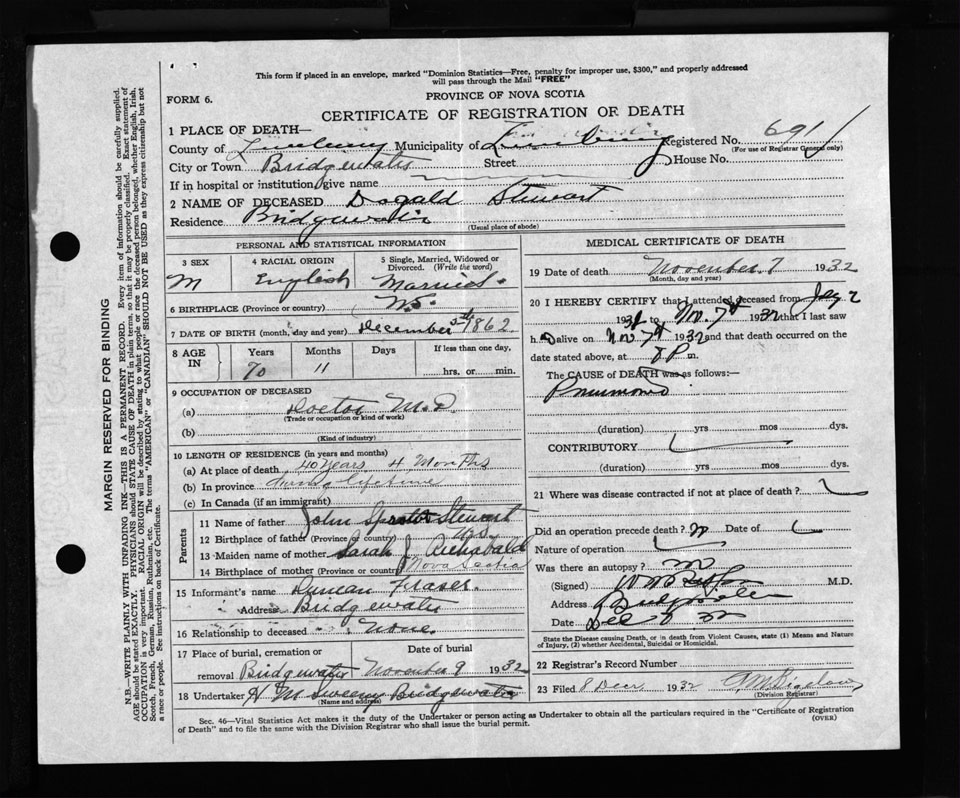 This form if placed in an envelope, marked "Dominion Statistics—Free, penalty for improper use, $300," and properly addressed
will pass through the Mail "FREE"
FORM 6.
PROVINCE OF NOVA SCOTIA
CERTIFICATE OF REGISTRATION OF DEATH
1 PLACE OF DEATH—
County of Lunenburg Municipality of Lunenburg Registered No. 691
(For use of Registrar General only)
City or Town Bridgewater Street House No.
If in hospital or institution give name
2 NAME OF DECEASED Dogald Stewart
Residence Bridgewater
(Usual place of abode)
PERSONAL AND STATISTICAL INFORMATION
3 SEX 4 RACIAL ORIGIN 5 Single, Married, Widowed or
Divorced. (Write the word)
M English Married.
6 BIRTHPLACE (Province or country) N.S.
7 DATE OF BIRTH (month, day and year) December 5th 1862.
8 AGE IN Years Months Days If less than one day,
70 11 hrs. or min.
9 OCCUPATION OF DECEASED
(a) Doctor M.D.
(Trade or occupation or kind of work)
(b)
(Kind of industry)
10 LENGTH OF RESIDENCE (in years and months)
(a) At place of death 40 years 4 Months
(b) In province During lifetime
(c) In Canada (if an immigrant)
Parents
11 Name of father John Sprott Stewart
12 Birthplace of father (Province or country) N.S.
13 Maiden name of mother Sarah J. Archabald
14 Birthplace of mother (Province or country) Nova Scotia
15 Informant's name Duncan Fraser.
Address Bridgewater
16 Relationship to deceased None.
17 Place of burial, cremation or Date of burial
removal Bridgewater November 9 1932
18 Undertaker H M Sweeny Bridgewater
(Name and address)
MEDICAL CERTIFICATE OF DEATH
19 Date of death November 7 1932
(Month, day and year)
20 I HEREBY CERTIFY that I attended deceased from
193 to Nov. 7th 1932 that I last saw
h alive on Nov 7th 1932 and that death occurred on the
date stated above, at 8 P m.
The CAUSE of DEATH was as follows:—
Pneumonia
(duration) yrs mos dys.
CONTRIBUTORY
(duration) yrs mos dys.
21 Where was disease contracted if not at place of death?
Did an operation precede death? no Date of
Nature of operation
Was there an autopsy? no
(Signed) M.D.
Address Bridgewater
Date Dec 8
State the Disease causing Death, or in death from Violent Causes, state (1) Means and Nature
of Injury, (2) whether Accidental, Suicidal or Homicidal.
22 Registrar's Record Number
23 Filed 8 Decr. 1932
(Division Registrar)
Sec. 46—Vital Statistics Act makes it the duty of the Undertaker or person acting as Undertaker to obtain all the particulars required in the "Certificate of Registration
of Death" and to file the same with the Division Registrar who shall issue the burial permit.
(OVER)
MARGIN RESERVED FOR BINDING
N.B.—WRITE PLAINLY WITH UNFADING INK—THIS IS A PERMANENT RECORD. Every item of information should be carefully supplied.
AGE should be stated EXACTLY. PHYSICIANS should STATE CAUSE OF DEATH in plain terms, so that it may be properly classified. Exact statement of
OCCUPATION is very important. RACIAL ORIGIN will be described by stating to what people or race the deceased person belonged, whether English, Irish,
Scotch, French, German, Russian, Ruthenian, etc. The terms "AMERICAN" or "CANADIAN" SHOULD NOT BE USED as they express citizenship but not
a race or people. See instructions on back of Certificate.